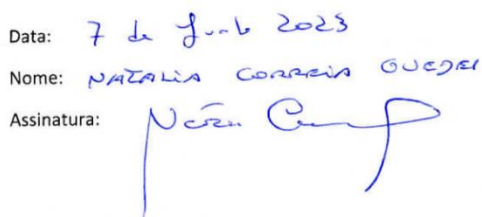 Data: 7 de Junho 2023
Nome: NATALIA CORREIA GUEDES
Assinatura: